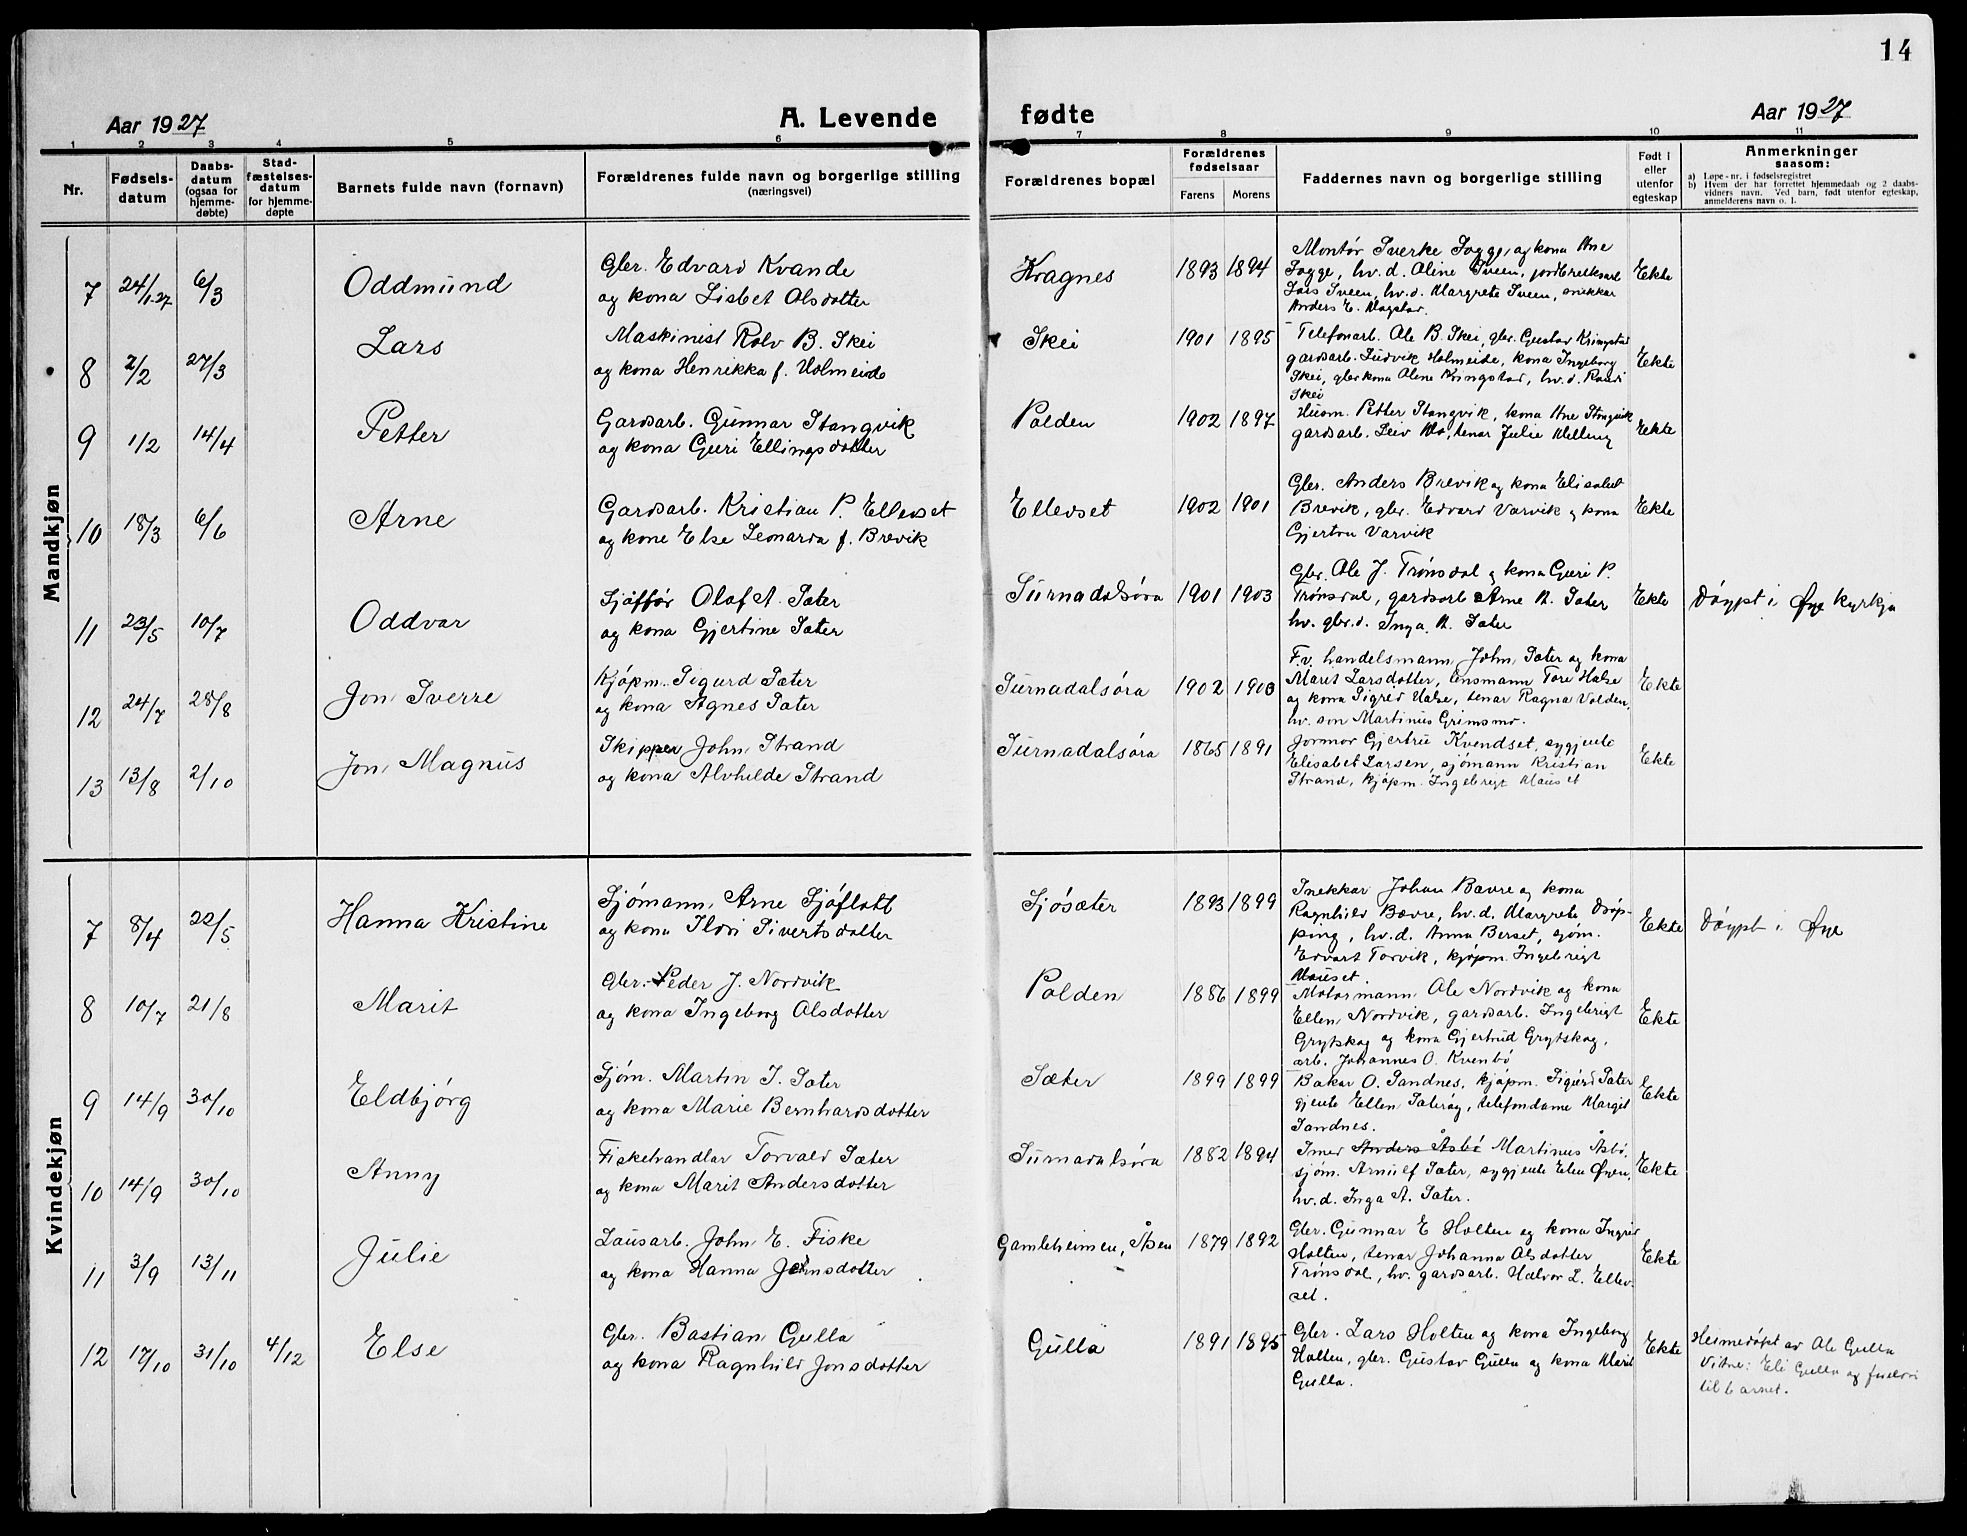 14
Aar 1927
A. Levende fødte
Aar 1927
1 2 3 4 5 6 7 8 9 10 11
Nr.
Fødsels-
datum
Daabs-
datum
(ogsaa for
hjemme-
døbte)
Stad-
fæstelses-
datum
for hjemme-
døpte
Barnets fulde navn (fornavn)
Forældrenes fulde navn og borgerlige stilling
(næringsvei)
Forældrenes bopæl
Forældrenes
fødselsaar
Farens Morens
Faddernes navn og borgerlige stilling
Født i
eller
utenfor
egteskap
Anmerkninger
saasom:
a) Løpe-nr. i fødselsregistret
b) Hvem der har forrettet hjemmedaab og 2 daabs-
vidners navn. Ved barn, født utenfor egteskap,
anmelderens navn o. l.
Mandkjøn
7 24/1 27 6/3 Oddmund
Gbr. Edvard Kvande
og kona Lisbet Olsdotter
Kragnes 1893 1894
Montør Sverke Fagge, og kona Ane
Fagge, hv.d. Oline Sveen, jordbruksarb
Lars Sveen, hv.d. Margrete Sveen, snikkar
Anders E. Magstad.
Ekte
8 2/2 27/3 Lars
Maskinist Rolv B. Skei
og kona Henrikka f. Holmeide
Skei 1901 1895
Telefonarb. Ole B. Skei, gbr. Gustav Kringstad
gardsarb. Ludvik Holmeide, kona Ingeborg
Skei, gbrkona Oline Kringstad, hv.d. Randi
Skei
Ekte
9 1/2 14/4 Petter
Gardsarb. Gunnar Stangvik
og kona Guri Ellingsdotter
Polden 1902 1897
Husm. Petter Stangvik, kona Ane Stangvik
gardsarb. Leiv Mo, tenar Julie Melling
Ekte
10 18/3 6/6 Arne
Gardsarb. Kristian P. Ellevset
og kone Else Leonarda f. Brevik
Ellevset 1902 1901
Gbr. Anders Brevik og kona Elisabet
Brevik, gbr. Edvard Varvik og kona
Gjertru Varvik
Ekte
11 23/5 10/7 Oddvar
Sjåffør Olaf A. Sæter
og kona Gjertine Sæter
Surnadalsøra 1901 1903
Gbr. Ole J. Trønsdal og kona Guri P.
Trønsdal, gardsarb Arne A. Sæter
hv. gbr.d. Inga A. Sæter
Ekte
Døypt i Øye kyrkja
12 24/7 28/8 Jon Sverre
Kjøpm. Sigurd Sæter
og kona Agnes Sæter
Surnadalsøra 1902 1903
F.v. handelsmann John Sæter og kona
Marit Larsdotter, lensmann Tore Halse
og kona Sigrid Halse, tenar Ragna Volden,
hv. son Martinus Grimsmo.
Ekte
13 13/8 2/10 Jon Magnus
Skipper John Strand
og kona Alvhilde Strand
Surnadalsøra 1865 1891
Jormor Gjertru Kvendset, sygjente
Elisabet Larsen, sjømann Kristian
Strand, kjøpm. Ingebrigt Mauset
Ekte
Kvindekjøn
7 8/4 22/5 Hanna Kristine
Sjømann Arne Sjøflott
og kona Ildri Sivertsdotter
Sjøsæter 1893 1899
Snekkar Johan Bævre og kona
Ragnhild Bævre, hv.d. Margrete Drøp-
ping, hv.d. Anna Berset, sjøm.
Edvart Torvik, kjøpm. Ingebrigt
Mauset.
Ekte
Døypt i Øye
8 10/7 21/8 Marit
Gbr. Peder J. Nordvik
og kona Ingeborg Olsdotter
Polden 1886 1899
Motormann Ole Nordvik og kona
Ellen Nordvik, gardsarb. Ingebrigt
Grytskog og kona Gjertrud Grytskog,
arb. Johannes O. Kvenbø
Ekte
9 14/9 30/10 Eldbjørg
Sjøm. Martin J. Sæter
og kona Marie Bernhardsdotter
Sæter 1899 1899
Bakar O. Sandnes, kjøpm. Sigurd Sæter
gjente Ellen Sæterøy, telefondame Margit
Sandnes.
Ekte
10 14/9 30/10 Anny
Fiskehandlar Torvald Sæter
og kona Marit Andersdotter
Surnadalsøra 1882 1894
Smed Anders Åsbø Martinus Åsbø,
sjøm. Arnulf Sæter, sygjente Elen Øyen,
hv.d. Inga A. Sæter.
Ekte
11 3/9 13/11 Julie
Lausarb. John E. Fiske
og kona Hanna Jensdotter
Gamleheimen, Åsen 1879 1892
Gbr. Gunnar E Holten og kona Ingrid
Holten, tenar Johanna Olsdotter
Trønsdal, hv. gardsarb. Halvor L. Ellev-
set.
Ekte
12 17/10 31/10 4/12 Else
Gbr. Bastian Gulla
og kona Ragnhild Jonsdotter
Gulla 1891 1895
Gbr. Lars Holten og kona Ingeborg
Holten, gbr. Gustav Gulla og kona Marit
Gulla.
Ekte
Heimedøpt av Ole Gulla
Vitne: Eli Gulla og
til barnet.